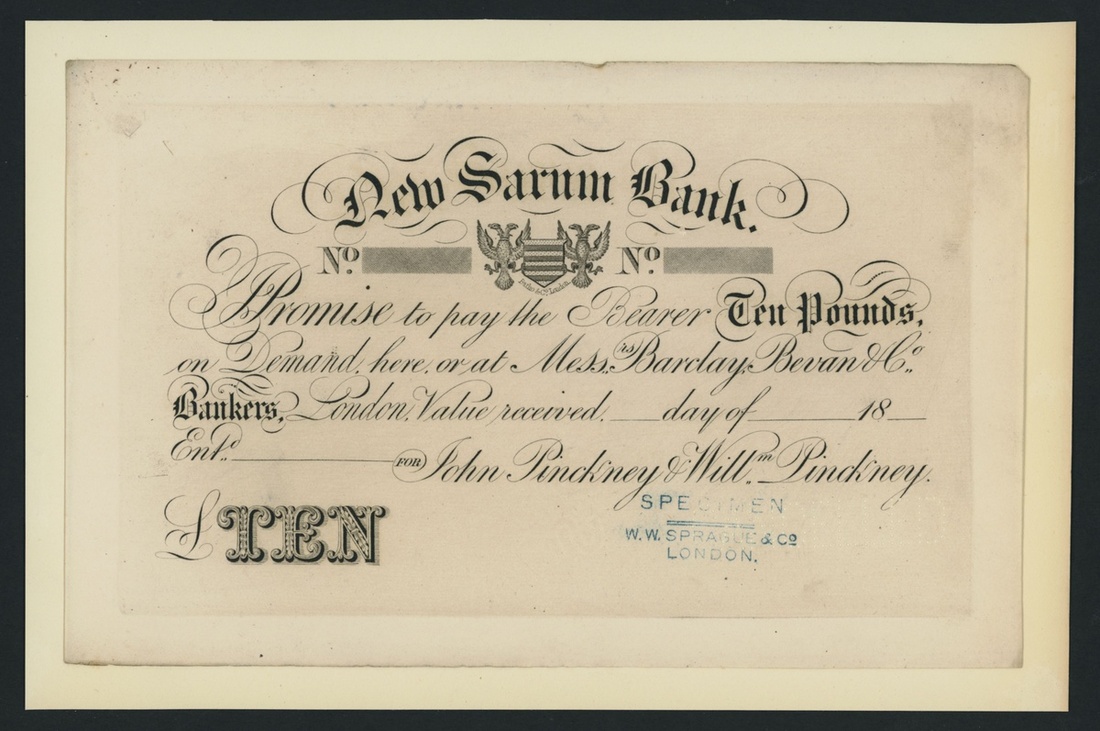 New Sarum Bank.
No. No.
I Promise to pay the Bearer Ten Pounds,
on Demand, here, or at Messrs. Barclay, Bevan & Co.
Bankers, London, Value received. day of 18
Entd. FOR John Pinckney & Willm. Pinckney.
£ TEN
SPECIMEN
W.W. SPRAGUE & Co
LONDON.